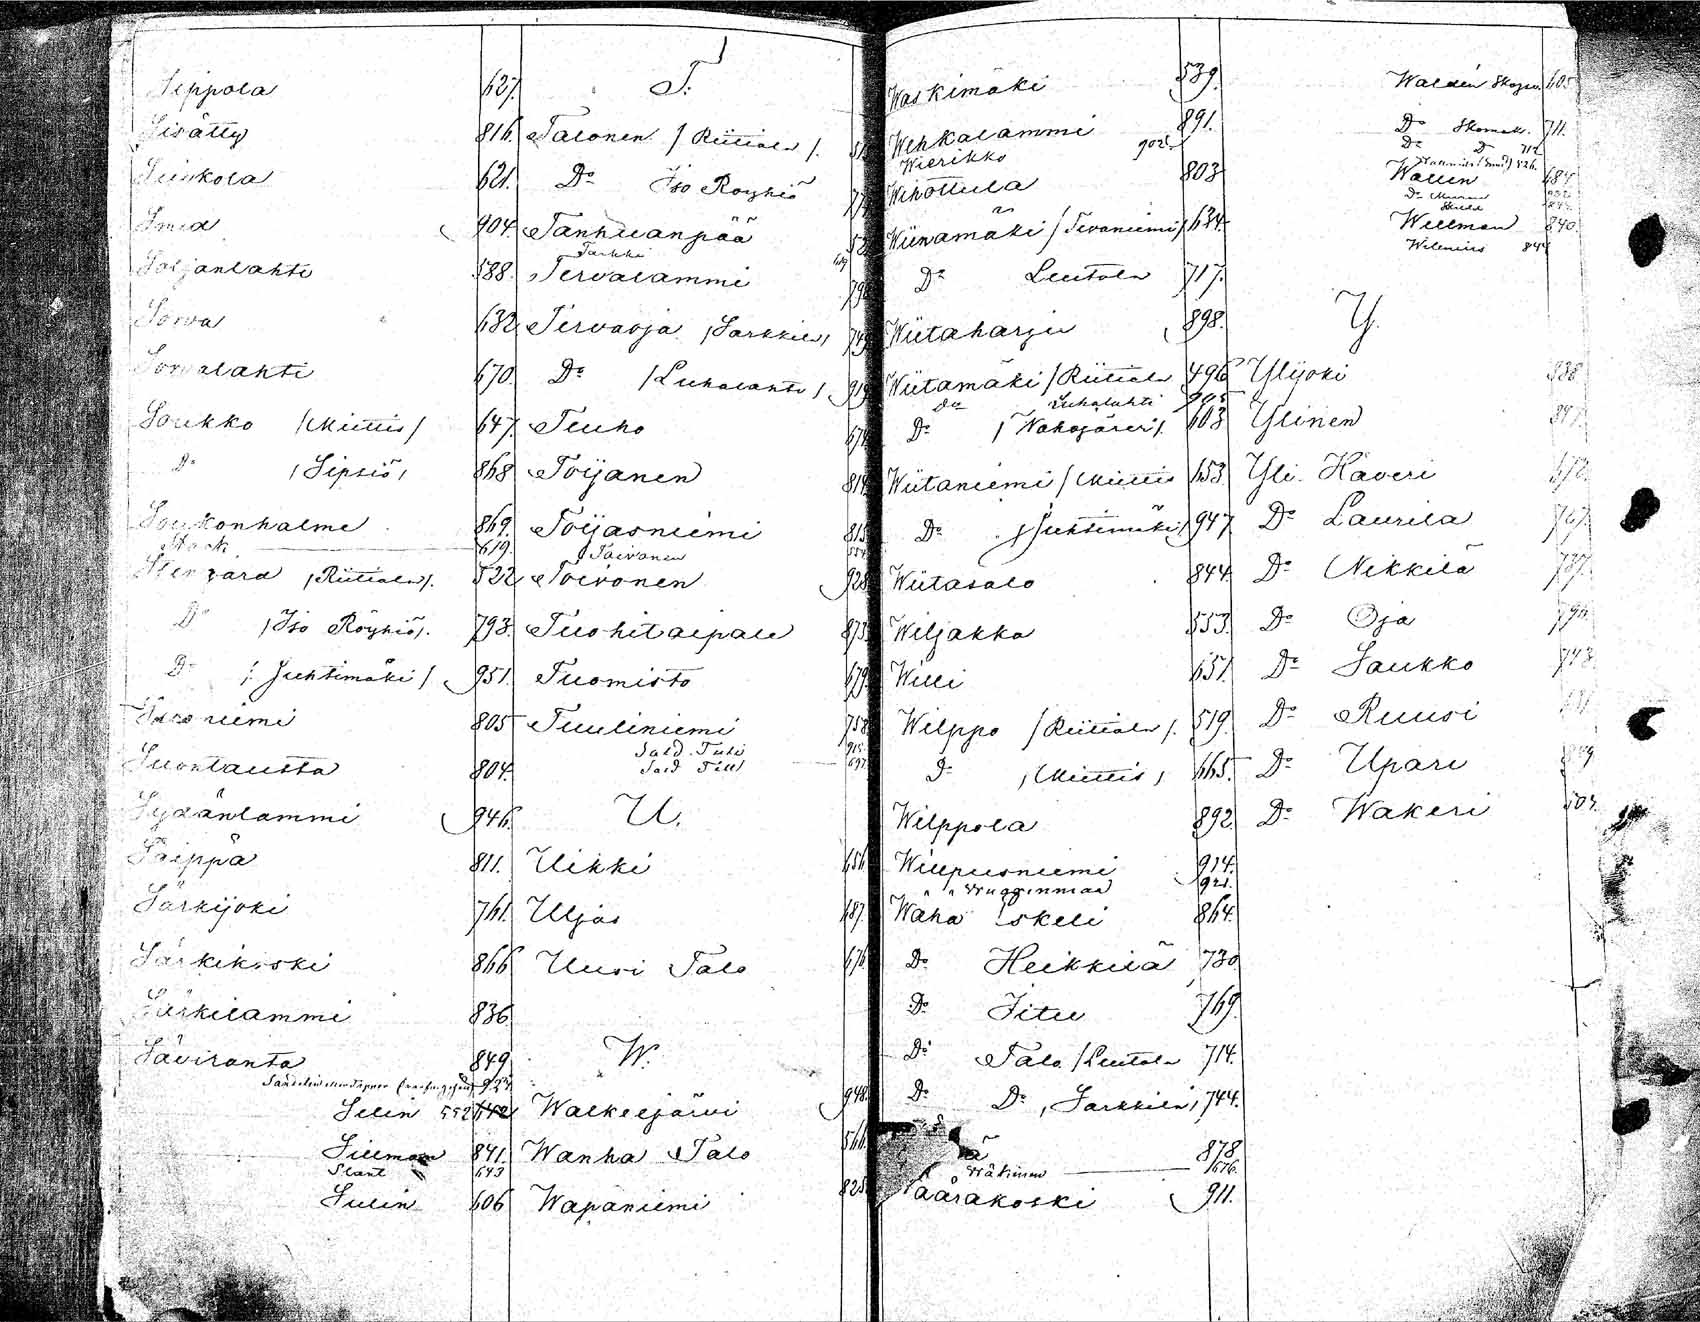 Seppola 627.
Sisätty 816.
Siukola 621.
Smed 904.
Soljanlahti 588.
Sorva 632
Sorvalahti 670.
Soukko /Miettis/ 647.
Do /Sipsiö/ 868
Soukonhalme 869.
Stark 619.
Stengård /Riitiala/. 522
Do /Iso Röyhiö/. 793.
Do /Juhtimäki/ 951.
Suoniemi 805
Suontausta 804.
Sydänlammi 946.
Säippä 811.
Särkijoki 761.
Särkikoski 866
Särkilammi 836.
Säviranta 849
924.
Selin 552 642
Sillman 841.
Slant 643
Sulin 606
T.
Talonen /Riitiala/.
Do Iso Röyhiö
Tanhuanpää
Tarkki
Tervalammi
Tervaoja /Sarkkila/ 749
Do /Luhalahti/ 919
Teuho 674
Toijanen 814
Toijasniemi 815
Taivonen 554
Toivonen 928
Tuohitaipale 873
Tuomisto 679
Tuuliniemi 758
Sold. Tuli 915
Sold Till
U.
Uikki 656
Uljas 687.
Uusi Talo 676
W.
Walkeejärvi 948.
Wanha Talo 566.
Wapaniemi 825
Waskimäki 539.
Wehkalammi 891.
Wierikko 902
Wihottula 803
Wiinamäki /Tevaniemi/ 634
Do Leutola 717.
Wiitaharju 898.
Wiitamäki /Riitiala 496
Do Luhalahti 905
Do /Wahojärvi/. 603
Wiitaniemi /Miettis 653
Do /Juhtimäki/ 947
Wiitasalo 844
Wiljakka 553.
Willi 651
Wilppo /Riitiala/. 519.
Do /Miettis/ 665.
Wilppola 892
Wiupusniemi 914.
" " Wuggenmaa 921.
Wäha Iskeli 864.
Do Heikkilä 730
Do Iitu 769.
Do Talo /Leutola 714.
Do Do /Sarkkila/ 744.
ä 878
Wäkinen 676.
äärakoski 911.
Walden Skogsv. 605
Do Skomak. 711.
Do D 712
526.
Wallin 684
Do Murare
Wellman 840.
Wilenius 844
Y.
Ylijoki 588
Ylinen 847.
Yli- Häveri 672.
Do Laurila 767.
Do Nikkilä 737.
Do Oja 794.
Do Saukko 743.
Do Ruusi
Do Upari 809
Do Wakeri 507.